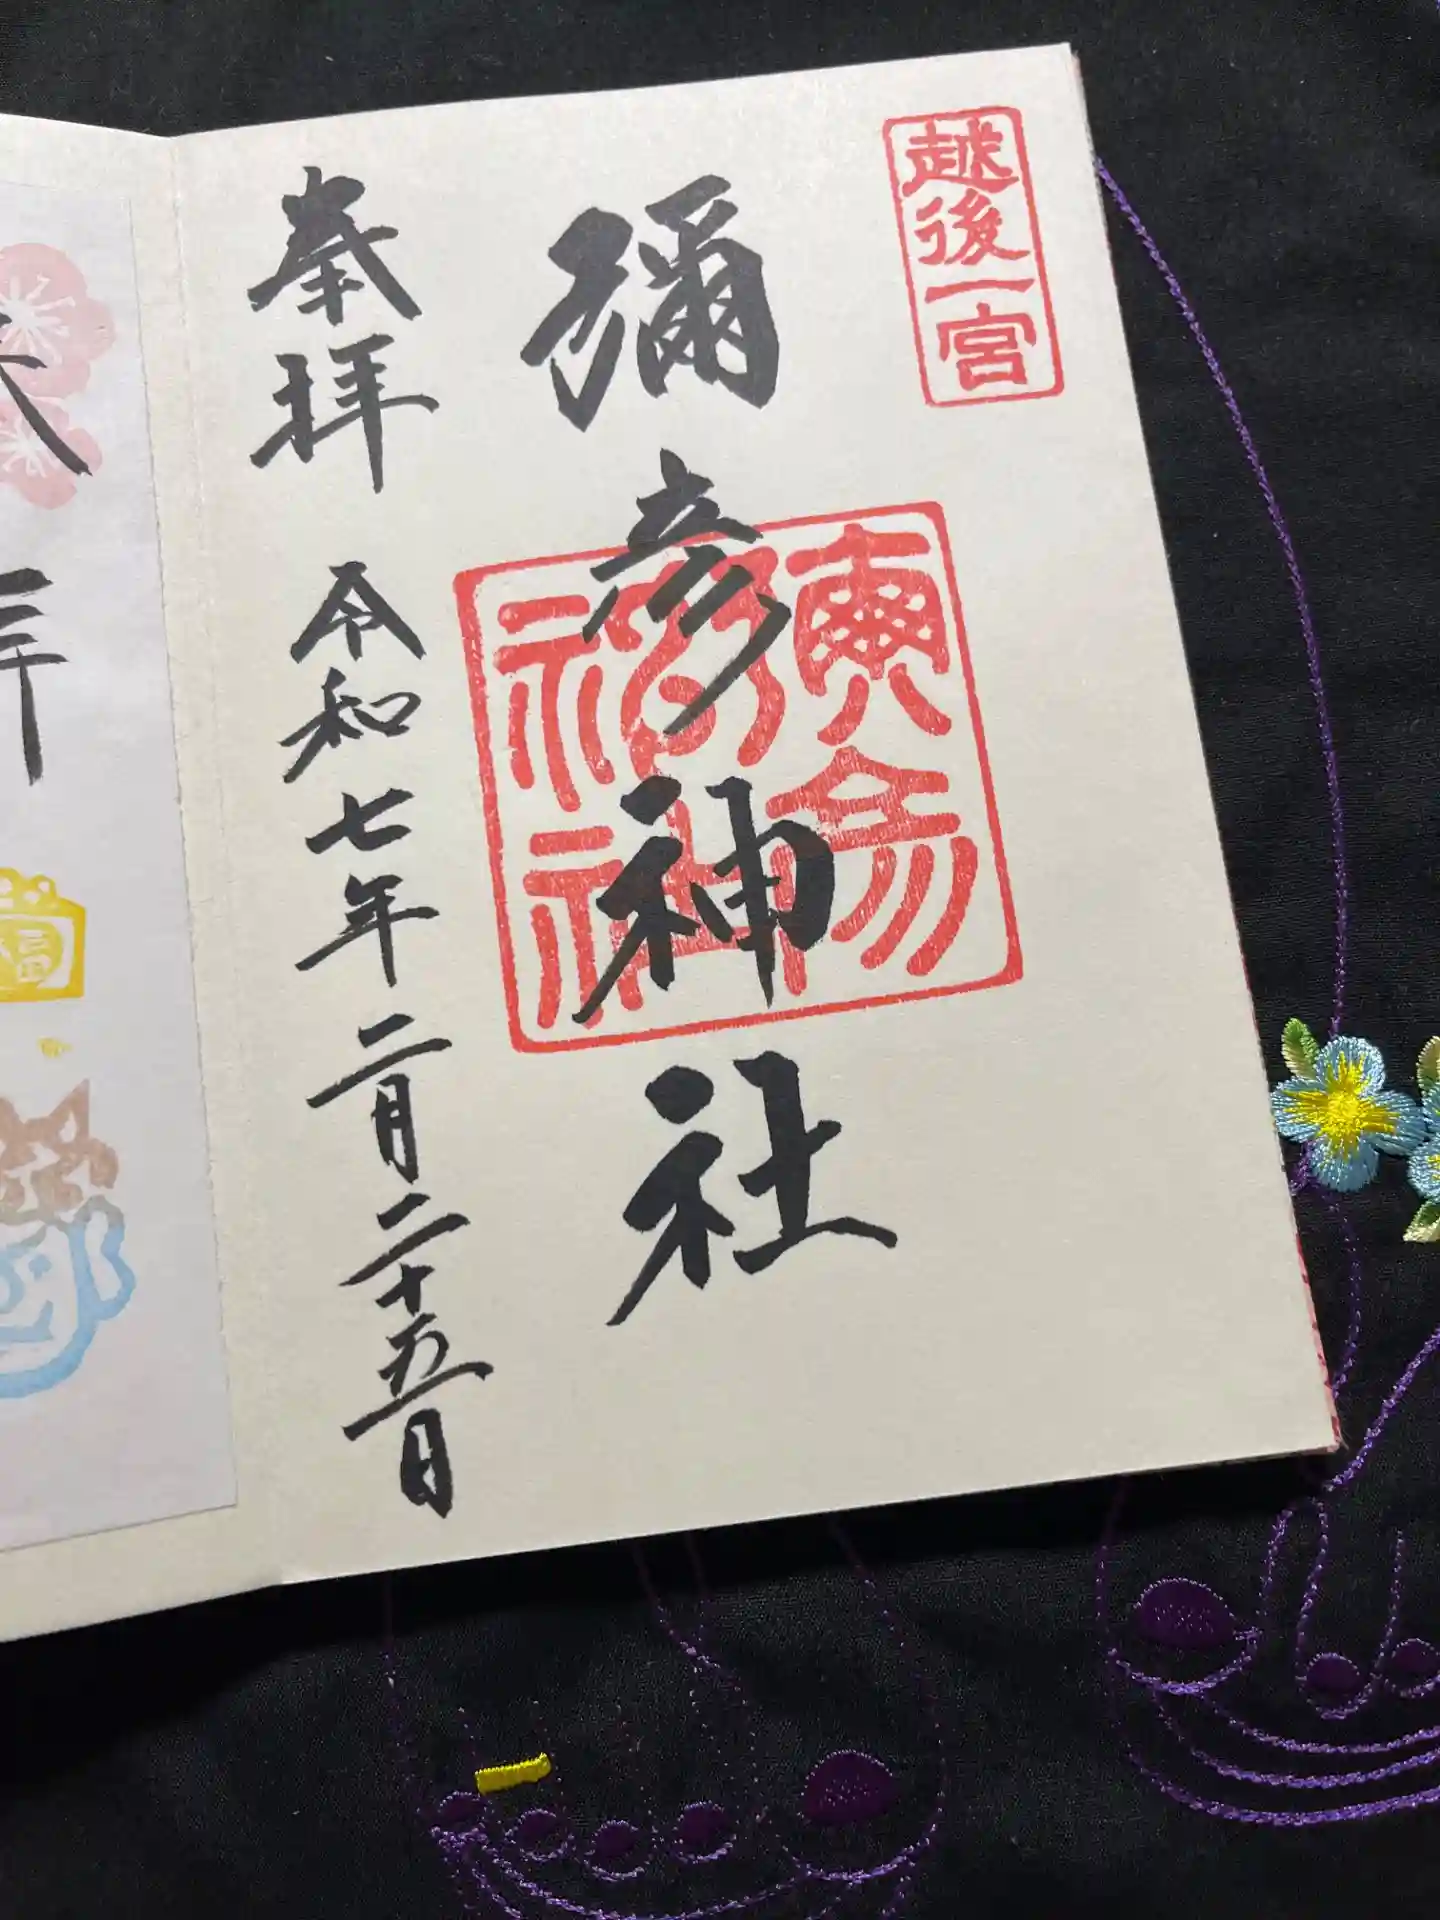 越後一宮
彌彦神社
奉拝
令和七年二月二十五日